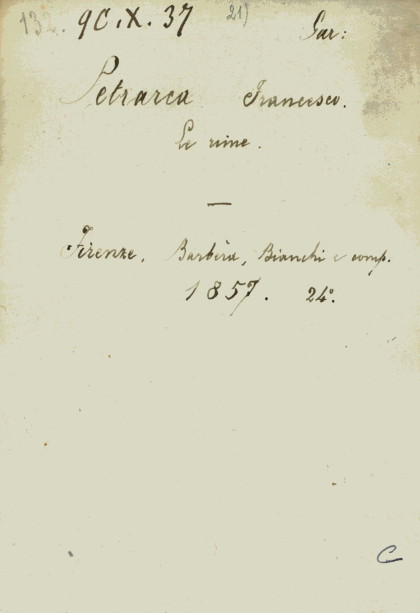 132. 90.X.37 21)
Gar:
Petrarca Francesco.
Le rime.
—
Firenze. Barbèra, Bianchi e comp.
1857. 24°.
C